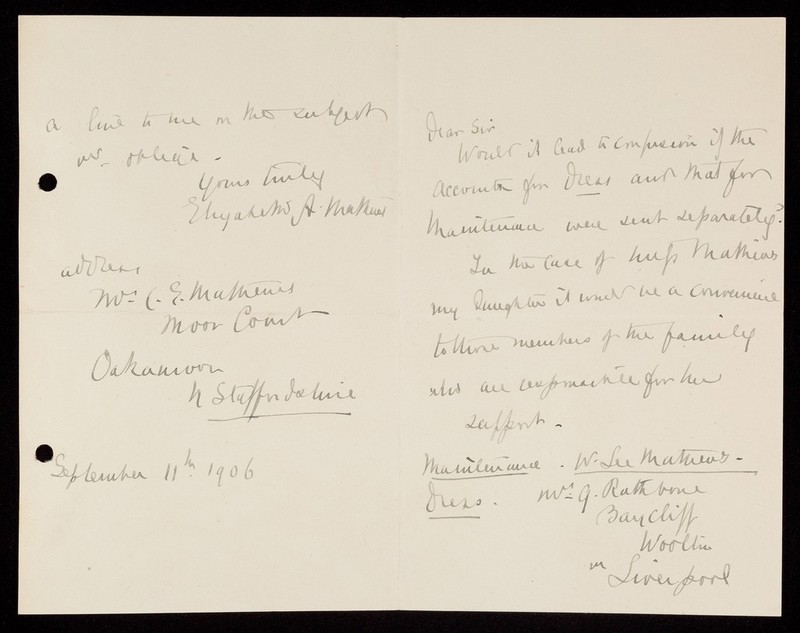 Dear Sir
Would it lead to confusion if the
accounts for Dress and that for
Maintenance were sent separately?
In the case of Miss Mathews
my daughter it would be a convenience
to those members of the family
who are responsible for her
support -
Maintenance. W. Lee Mathews -
Dress. Mrs G. Rathbone
Baycliff
Woolton
nr Liverpool
a line to me on the subject
will oblige -
Yours truly
Elizabeth A. Mathews
address
Mrs C. E. Mathews
Moor Court
Oakamoor
N Staffordshire
September 11th 1906